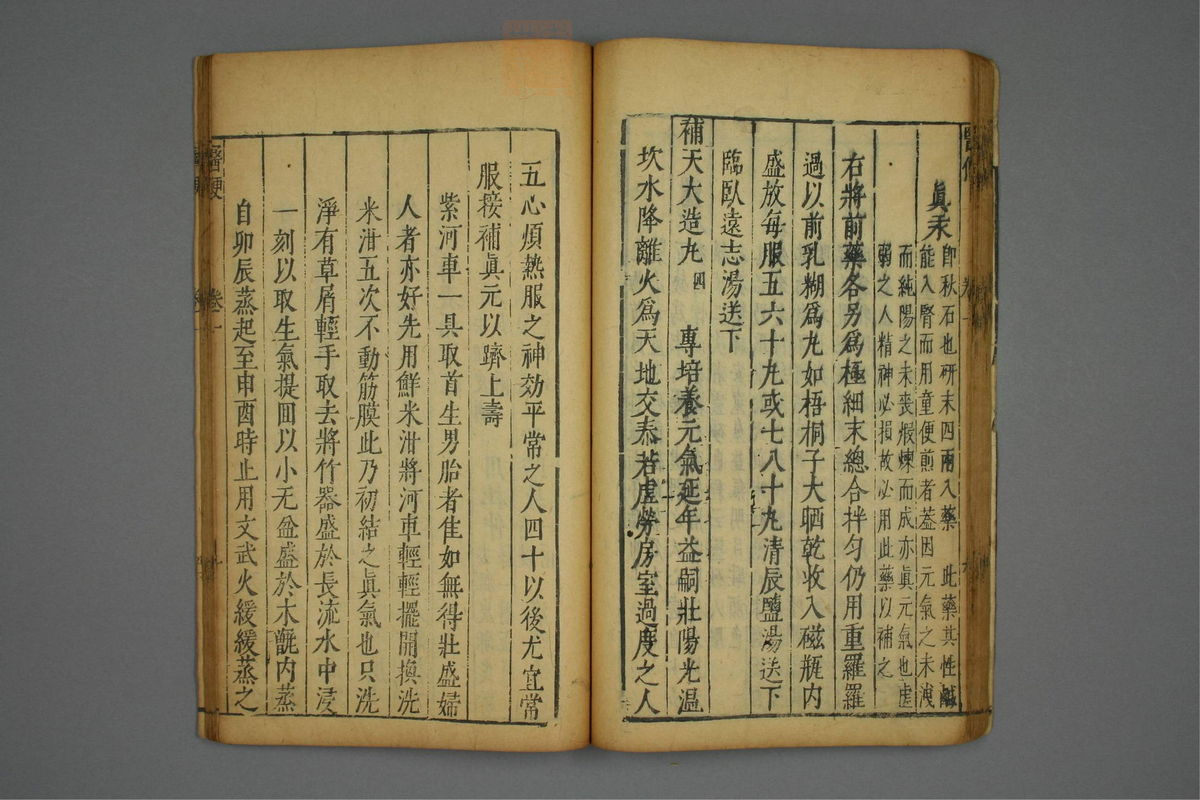 眞汞
即秋石也研末四兩入藥 此藥其性鹹
能入腎而用童便煎者葢因元氣之未洩
而純陽之未喪煅煉而成亦眞元氣也虛
弱之人精神必損故必用此藥以補之
右將前藥各另爲極細末總合拌勻仍用重羅羅
過以前乳糊爲丸如梧桐子大晒乾收入磁瓶内
盛放每服五六十丸或七八十丸清辰鹽湯送下
臨臥遠志湯送下
補天大造丸 四 專培養元氣延年益嗣壯陽光溫
坎水降離火爲天地交泰若虛勞房室過度之人
五心煩熱服之神効平常之人四十以後尤宜常
服接補眞元以躋上壽
紫河車一具取首生男胎者隹如無得壯盛婦
人者亦好先用鮮米泔將河車輕輕擺開換洗
米泔五次不動筋膜此乃初結之眞氣也只洗
淨有草屑輕手取去將竹器盛於長流水中浸
一刻以取生氣提囬以小瓦盆盛於木甑内蒸
自卯辰蒸起至申酉時止用文武火緩緩蒸之
醫便
卷一